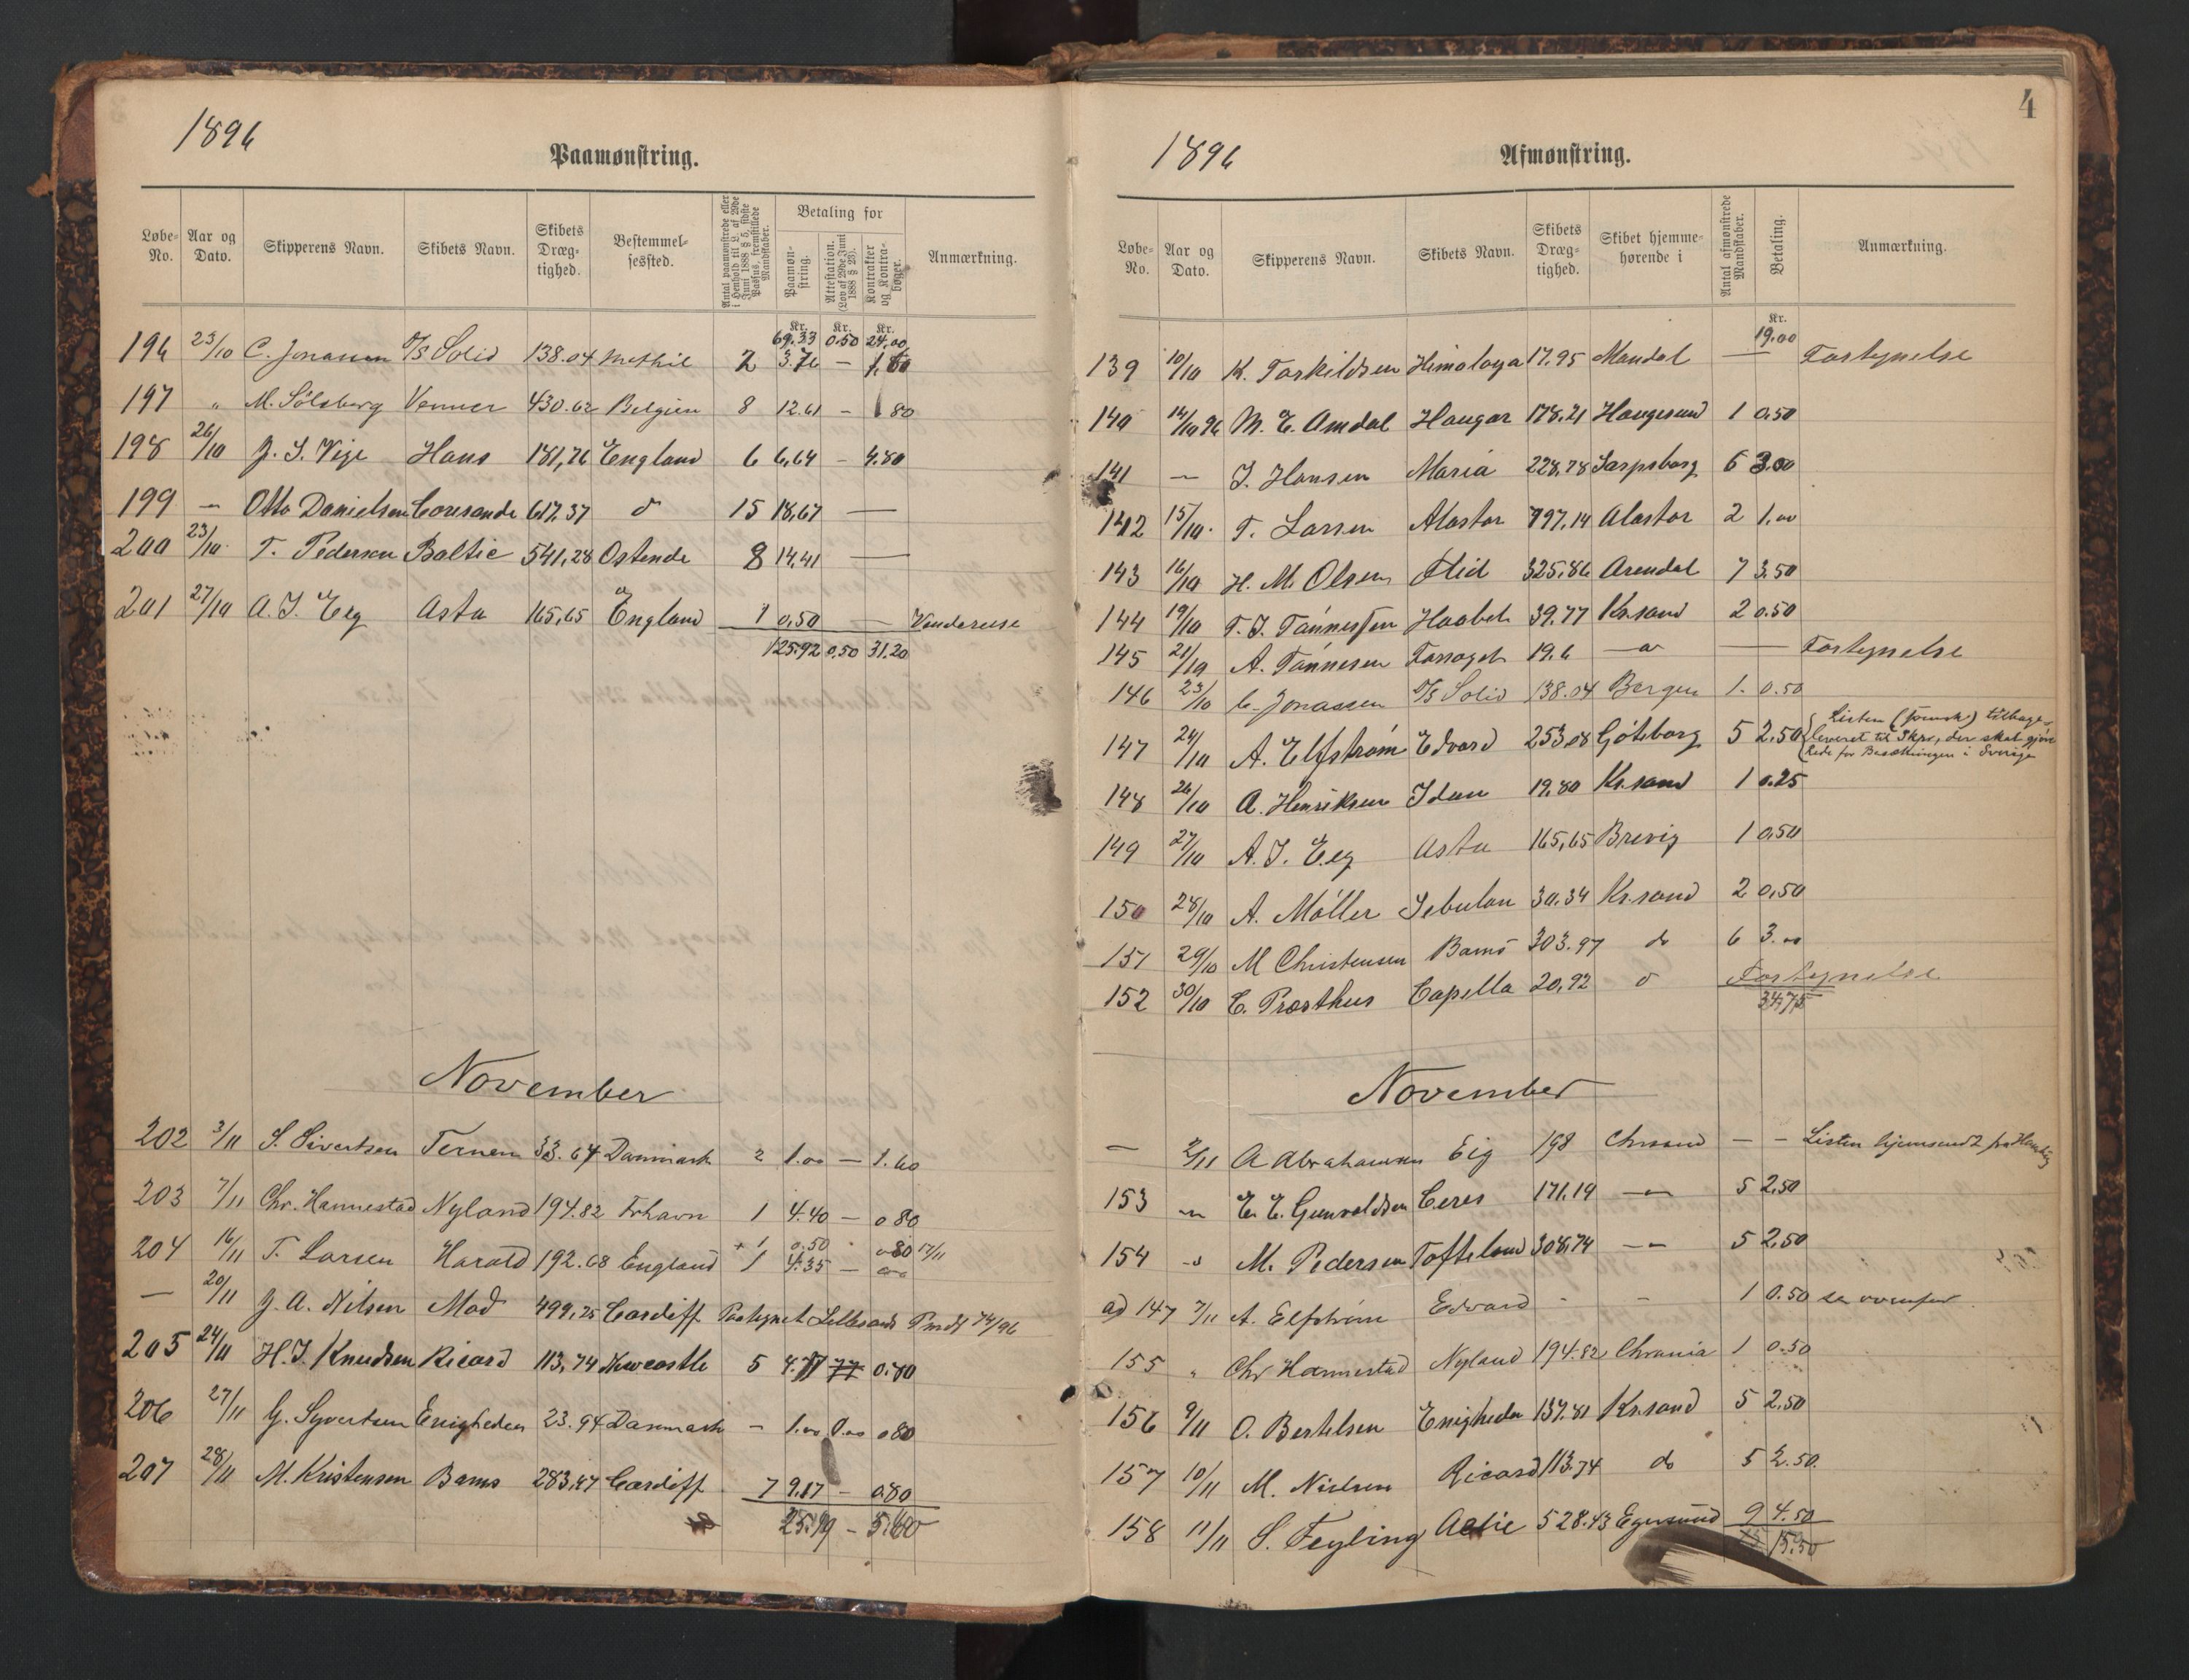 1896
Paamønstring.
Løbe-No. Aar og Dato. Skipperens Navn. Skibets Navn. Skibets Dræg-tighed. Bestemmel-sessted. Antal paamønstrede eller i Henhold til L. af 29de Juni 1888 § 5, sidste Passus, fremstillede Mandskaber. Betaling for Paamøn-string. Attestation. (Lov af 29de Juni 1888 § 23). Kontrakter og Kontra-bøger. Anmærkning.
Kr. Kr. Kr.
69.33 0.50 24,00
196 23/10 C. Jonassen D/S Solid 138.04 Methil 2 3.76 — 1,60
197 " M. Sölsberg Venner 430.62 Belgien 8 12.61 - 80
198 26/10 J. S. Vige Hans 181,76 England 6 6,64 - 4.80
199 — Otto Danielsen Coresande 617,37 d 15 18,67 —
200 23/10 T. Pedersen Baltic 541,28 Ostende 8 14,41 —
201 27/10 A. I. Eeg Asta 165,65 England 1 0,50 —
125.92 0,50 31.20
November
202 3/11 S. Sivertsen Ternen 33.64 Danmark 2 1.00 — 1.60
203 7/11 Chr. Hannestad Nyland 194.82 Frhavn 1 4.40 — 0 80
+ 1 0.50 0 80 17/11
204 16/11 T. Larsen Harald 192.68 England 1 4.35 —
— 20/11 J. A. Nilsen Mod 499,25 Cardiff Paategnet Lillesands 74/96
205 24/11 H. I. Knudsen Ricard 113,74 Newcastle 5 4.77 77 0.80
206 27/11 G. Syvertsen Enigheden 23.94 Danmark — 1.00 0.00 0 80
207 28/11 M. Kristensen Bams 283,47 Cardiff 7 9.17 — 0.80
25.19 — 5.60
4
1896
Afmønstring.
Løbe-No. Aar og Dato. Skipperens Navn. Skibets Navn. Skibets Dræg-tighed. Skibet hjemme-hørende i Antal afmønstrede Mandskaber. Betaling. Anmærkning.
Kr.
19.00
139 10/10 K. Torkildsen Himalaya 17.95 Mandal — Fortegnelse
140 14/10 96 M. E. Omdal Haugar 178.21 Haugesund 1 0.50
141 — I. Hansen Maria 228,78 Sarpsborg 6 3.00
142 15/10 T. Larsen Alastor 797,14 Alastor 2 1.00
143 16/10 H. M. Olsen Flid 325,86 Arendal 7 3.50
144 19/10 T. I. Tönnessen Haabet 39.77 Kr.sand 2 0.50
145 21/10 A. Tönnesen Forsøget 19.6 — — Fortegnelse
146 23/10 C. Jonassen D/S Solid 138.04 Bergen 1. 0.50
147 24/10 A. Elfström Edvard 253,08 Göteborg 5 2.50 Listen (svensk) tilbage-
leveret til Skpr, der skal gjöre
Rede for Besætningen i Sverige
148 26/10 A. Henriksen Idun 19,80 Kr.sand 1 0.25
149 27/10 A. I. Eeg Asta 165,65 Brevig 1 0,50
150 28/10 A. Möller Sebulon 30,34 Kr.sand 2 0,50
151 29/10 M Christensen Bams 303.97 do 6 3.00
152 30/10 C. Præsthus Capella 20,92 d Fortegnelse
34,75
November
— 2/11 A Abrahamsen Eig 198 Chrsand — — Listen hjemsendt fra
153 — E. E. Gunvaldsen Ceres 171,19 — 5 2.50
154 — M. Pedersen Toftelund 308,74 — 5 2.50
ad 147 7/11 A. Elfström Edvard - - 1 0.50 se ovenfor
155 " Chr Hannestad Nyland 194.82 Chrania 1 0.50
156 9/11 O. Bertelsen Enigheden 137.81 Kr.sand 5 2.50
157 10/11 M. Nielsen Ricard 113.74 do 5 2.50
158 11/11 S. Feyling Activ 528.43 Egersund 9 4.50
15.50